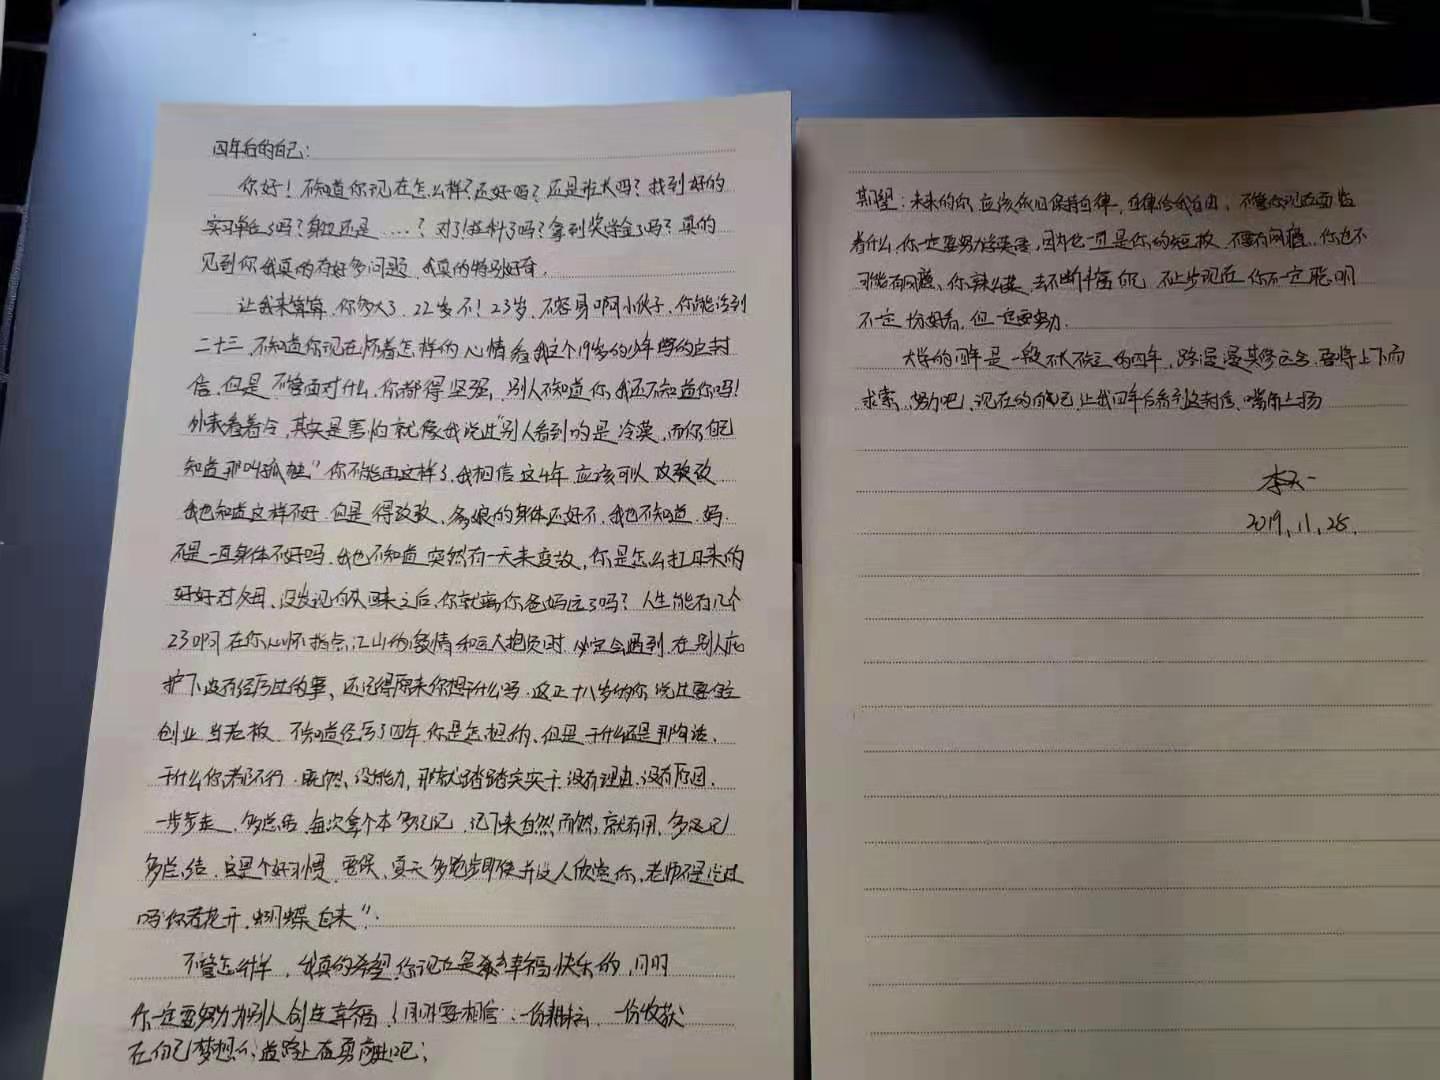 四年后的自己：
你好！不知道你现在怎么样？还好吗？还是班长吗？找到好的
实习单位了吗？身边还是……？对了！挂科了吗？拿到奖学金了吗？真的
见到你我真的有好多问题，我真的特别好奇。
让我来算算，你多大了，22岁不！23岁，不容易啊小伙子，你能活到
二十三，不知道你现在怀着怎样的心情看我这个19岁的少年写的这封
信，但是不管面对什么，你都得坚强，别人不知道你，我还不知道你吗！
外表看着冷，其实是害怕就像我说过"别人看到的是冷漠，而你自己
知道那叫孤独"你不能再这样了，我相信这4年应该可以改改改
我也知道这样不好，但是得改改，爹娘的身体还好不，我也不知道，妈
不是一直身体不好吗，我也不知道突然有一天来变故，你是怎么扛下来的
好好对父母，没发现你回来之后，你就离你爸妈远了吗？人生能有几个
23啊在你心怀指点江山的激情和巨人抱负时，必定会遇到在别人庇
护下没有经历过的事，还记得原来你想干什么吗，这正十八岁的你说过要
创业当老板，不知道经历了四年你是怎想的，但是干什么还是那句话，
干什么你都不行，既然没能力，那就踏踏实实干，没有理由，没有原因，
一步步走，多总结，每次拿个本多记记，记下来自然而然就有用，多记记
多总结，这是个好习惯，夏天多跑步即使并没人欣赏你，老师不是说过
吗"你若花开，蝴蝶自来"。
不管怎么样，我真的希望你现在是幸福快乐的，同时
你一定要努力为别人创造幸福，同时要相信，一份耕耘，一份收获
在自己梦想的道路上奋勇前进吧；
期望：未来的你，应该依旧保持自律，自律给我自由，不管你现在面临
着什么，你一定要努力学英语，因为它一直是你的短板，不要有网瘾，你也不
可能有网瘾，你去不断丰富自己，不止步现在你不一定聪明
不一定长好看，但一定要努力。
大学的四年是一段不长不短的四年，路漫漫其修远兮，吾将上下而
求索，努力吧，现在的自己，让我四年后看到这封信，嘴角上扬
2019.11.28.